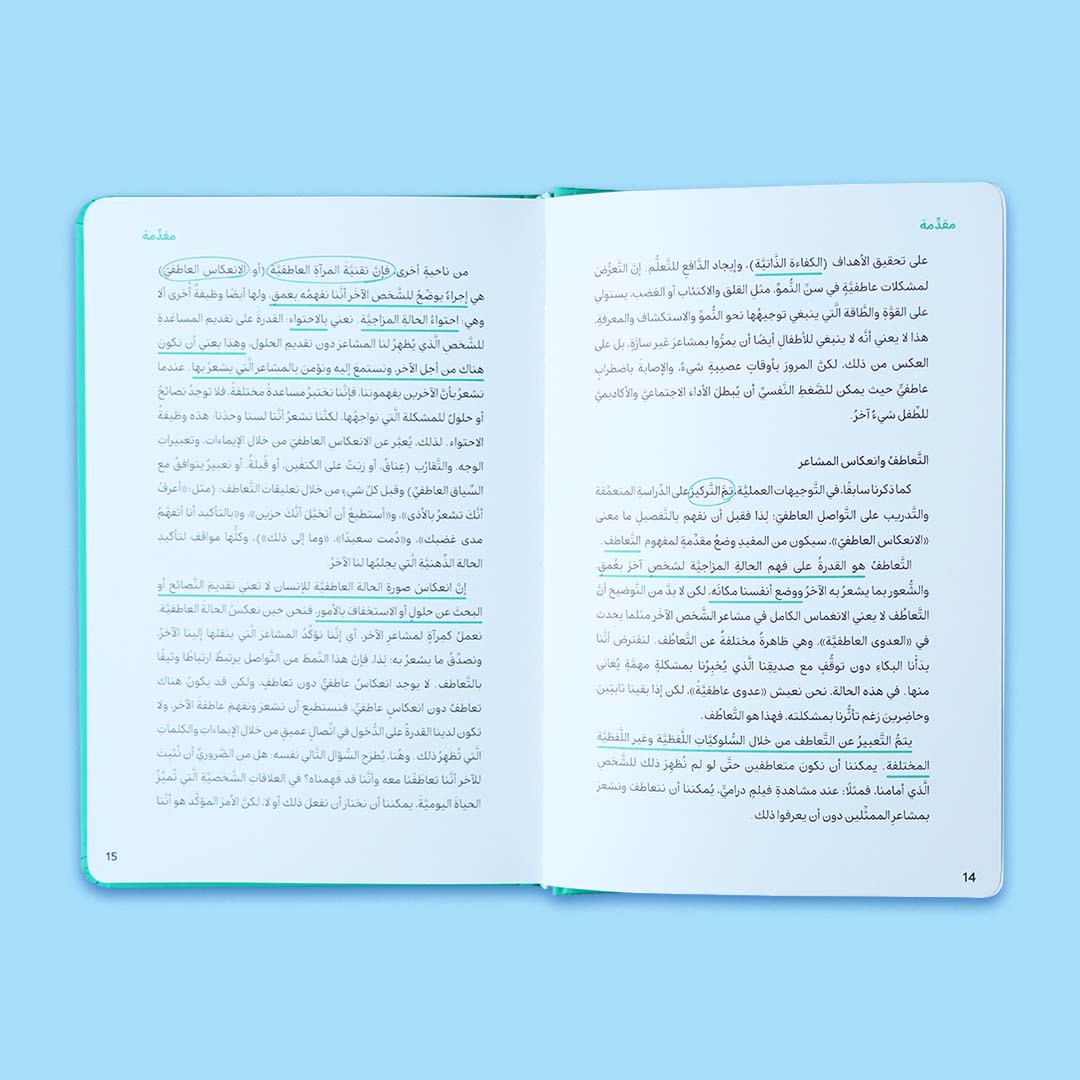 مقدِّمة
على تحقيق الأهداف (الكفاءة الذَّاتيَّة)، وإيجاد الدَّافعِ للتعلُّم. إنَّ التَّعرُّضَ
لمشكلات عاطفيَّةٍ في سنِّ النُّموِّ، مثلِ القلق والاكتئاب أو الغضب، يستولي
على القوَّةِ والطَّاقة الَّتي ينبغي توجيهُها نحو النُّموِّ والاستكشاف والمعرفةِ.
هذا لا يعني أنَّه لا ينبغي للأطفالِ أيضًا أن يمرُّوا بمشاعرَ غير سارَّةٍ، بل على
العكس من ذلك، لكنَّ المرورَ بأوقاتٍ عصيبةٍ شيءٌ، والإصابةَ باضطرابٍ
عاطفيٍّ حيث يمكن للضَّغطِ النَّفسيِّ أن يُبطلَ الأداء الاجتماعيَّ والأكاديميَّ
للطِّفل شيءٌ آخرُ.
التَّعاطفُ وانعكاس المشاعر
كما ذكرنا سابقًا، في التَّوجيهات العمليَّة، تمَّ التَّركيزُ على الدِّراسةِ المتعمِّقة
والتَّدريب على التَّواصلِ العاطفيّ؛ لِذا فقبل أن نفهم بالتَّفصيلِ ما معنى
«الانعكاس العاطفيّ»، سيكون من المفيدِ وضعُ مقدِّمةٍ لمفهوم التَّعاطف.
التَّعاطفُ هو القدرةُ على فهم الحالةِ المزاجيَّة لشخصٍ آخرَ بعُمقٍ،
والشُّعور بما يشعرُ به الآخرُ ووضعِ أنفسنا مكانَه، لكن لا بدَّ من التَّوضيح أنَّ
التَّعاطُف لا يعني الانغماس الكامل في مشاعر الشَّخص الآخر مثلما يحدث
في «العدوى العاطفيَّة»، وهي ظاهرةٌ مختلفةٌ عن التَّعاطُف. لنفترض أنَّنا
بدَأنا البكاءِ دون توقُّفٍ مع صديقِنا الَّذي يُخبِرُنا بمشكلةٍ مهمَّةٍ يُعاني
منها. في هذه الحالة، نحن نعيش «عدوى عاطفيَّةً»، لكن إذا بقينا ثابتِين
وحاضِرين رَغم تأثُّرنا بمشكلته، فهذا هو التَّعاطُف.
يتمُّ التَّعبيرُ عن التَّعاطف من خلال السُّلوكيَّاتِ اللَّفظيَّة وغير اللَّفظيَّة
المختلفة. يمكننا أن نكونَ متعاطفين حتَّى لو لم نُظهِرْ ذلك للشَّخصِ
الَّذي أمامنا، فمثلًا: عند مشاهدةِ فيلمٍ دراميٍّ، يُمكننا أن نتعاطفَ ونشعرَ
بمشاعرِ الممثِّلين دون أن يعرفوا ذلك.
14
مقدِّمة
من ناحيةٍ أخرى، فإنَّ تقنيَّةَ المرآةِ العاطفيَّة (أو: الانعكاس العاطفيّ)
هي إجراءٌ يوضِّحُ للشَّخص الآخَر أنَّنا نفهمُه بعمقٍ، ولها أيضًا وظيفةٌ أُخرى ألا
وهي: احتواءُ الحالةِ المزاجيَّة. نعني بالاحتواء: القدرةَ على تقديم المساعدةِ
للشَّخصِ الَّذي يُظهِرُ لنا المشاعرَ دون تقديمِ الحلول، وهذا يعني أن نكونَ
هناك من أجل الآخر، ونستمعَ إليه ونؤمنَ بالمشاعرِ الَّتي يشعرُ بها. عندما
نشعرُ بأنَّ الآخرين يفهموننا، فإنَّنا نختبرُ مساعدةً مختلفةً، فلا توجدُ نصائحُ
أو حلولٌ للمشكلة الَّتي نواجهُها، لكنَّنا نشعرُ أنَّنا لسنا وحدَنا؛ هذه وظيفةُ
الاحتواء. لذلك، يُعبَّر عن الانعكاسِ العاطفيّ من خلال الإيماءات، وتعبيراتِ
الوجه، والتَّقارُبِ (عِناقٌ، أو رَبتٌ على الكتفَين، أو قُبلةٌ، أو تعبيرٌ يتوافقُ مع
السِّياق العاطفيّ) وقبل كلِّ شيءٍ من خلال تعليقات التَّعاطف؛ (مثل: «أعرفُ
أنَّكَ تشعرُ بالأذى»، و«أستطيعُ أن أتخيَّلَ أنَّكَ حزين»، و«بالتَّأكيد أنا أتفهَّمُ
مدى غضبك»، و«دُمت سعيدًا»، «وما إلى ذلك»)، وكلُّها مواقف لتأكيدِ
الحالة الذِّهنيَّةِ الَّتي يجلبُها لنا الآخرُ.
إنَّ انعكاسَ صورةِ الحالة العاطفيَّة للإنسان لا تعني تقديمَ النَّصائح أو
البحثَ عن حلولٍ أو الاستخفافَ بالأمور، فنحن حين نعكسُ الحالةَ العاطفيَّة،
نعملُ كمِرآةٍ لمشاعرِ الآخر، أي إنَّنا نؤكِّدُ المشاعرَ الَّتي ينقلها إلينا الآخرُ،
ونصدِّقُ ما يشعرُ به؛ لِذا، فإنَّ هذا النَّمطَ من التَّواصل يرتبطُ ارتباطًا وثيقًا
بالتَّعاطف. لا يوجد انعكاسٌ عاطفيٌّ دون تعاطفٍ، ولكن قد يكونُ هناك
تعاطفٌ دون انعكاسٍ عاطفيٍّ، فنستطيع أن نشعرَ ونفهمَ عاطفة الآخر، ولا
تكون لدينا القدرةُ على الدُّخول في اتِّصالٍ عميقٍ من خلال الإيماءاتِ والكلماتِ
الَّتي تُظهرُ ذلك. وهُنا، يُطرَح السُّؤال التَّالي نفسه: هل من الضَّروريِّ أن نُثبِتَ
للآخرِ أنَّنا تعاطَفْنا معه وأنَّنا قد فَهِمناه؟ في العلاقاتِ الشَّخصيَّةِ الَّتي تُميِّزُ
الحياةَ اليوميَّةَ، يمكننا أن نختارَ أن نفعلَ ذلك أو لا، لكنَّ الأمرَ المؤكَّد هو أنَّنا
15